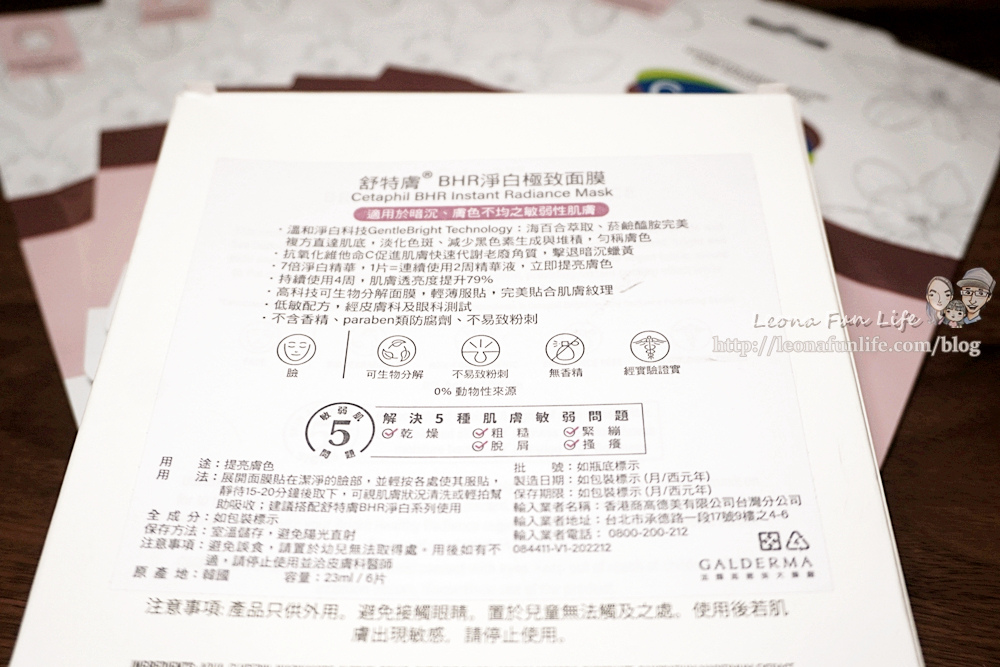 舒特膚® BHR淨白極致面膜
Cetaphil BHR Instant Radiance Mask
適用於暗沉、膚色不均之敏弱性肌膚
·溫和淨白科技GentleBright Technology：海百合萃取、菸鹼醯胺完美
複方直達肌底，淡化色斑、減少黑色素生成與堆積，勻稱膚色
·抗氧化維他命C促進肌膚快速代謝老廢角質，擊退暗沉蠟黃
·7倍淨白精華，1片=連續使用2周精華液，立即提亮膚色
·持續使用4周，肌膚透亮度提升79%
·高科技可生物分解面膜，輕薄服貼，完美貼合肌膚紋理
·低敏配方，經皮膚科及眼科測試
·不含香精、paraben類防腐劑、不易致粉刺
臉 可生物分解 不易致粉刺 無香精 經實驗證實
0% 動物性來源
敏弱肌 5 問題
解決5種肌膚敏弱問題
乾燥 粗糙 緊繃
脫屑 搔癢
用途：提亮膚色
用法：展開面膜貼在潔淨的臉部，並輕按各處使其服貼，
靜待15-20分鐘後取下，可視肌膚狀況清洗或輕拍幫
助吸收；建議搭配舒特膚BHR淨白系列使用
全成分：如包裝標示
保存方法：室溫儲存，避免陽光直射
注意事項：避免誤食，請置於幼兒無法取得處。用後如有不
適，請停止使用並洽皮膚科醫師
原產地：韓國 容量：23ml / 6片
批號：如瓶底標示
製造日期：如包裝標示 (月/西元年)
保存期限：如包裝標示 (月/西元年)
輸入業者名稱：香港商高德美有限公司台灣分公司
輸入業者地址：台北市承德路一段17號9樓之4-6
輸入業者電話： 0800-200-212
084411-V1-202212
GALDERMA
注意事項:產品只供外用。避免接觸眼睛。置於兒童無法觸及之處。使用後若肌
膚出現敏感，請停止使用。
Leona Fun Life
http://leonafunlife.com/blog